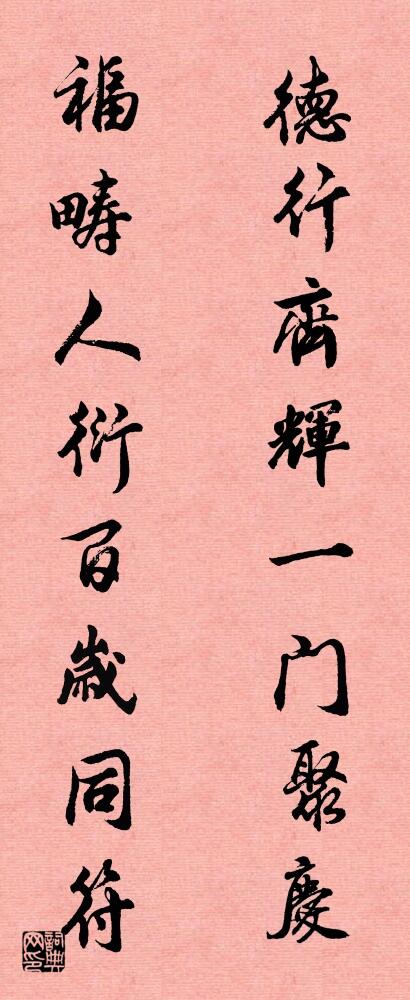 德行齊輝一门聚慶
福畴人衍百歲同符
詞典网印